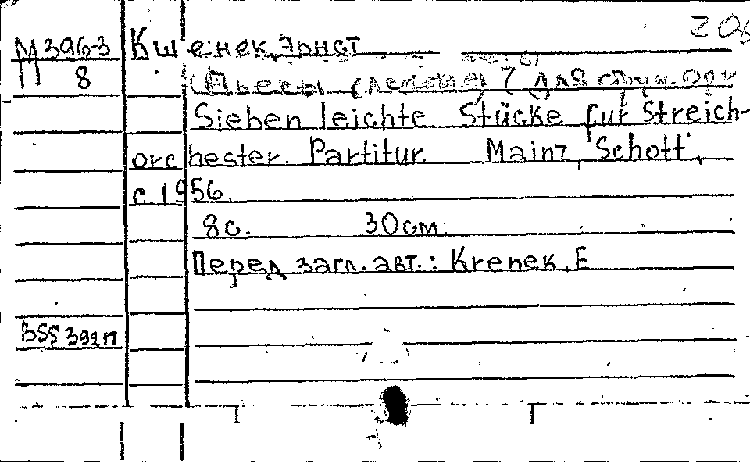 М 396-3 Кшенек, Эрнст
П 8 (Пьесы легкие 7 для струн. орк
Sieben leichte Stücke für Streich-
orchester. Partitur. Mainz, Schott,
c 1956.
8 с. 30 см.
Перед загл. авт.: Krenek, E